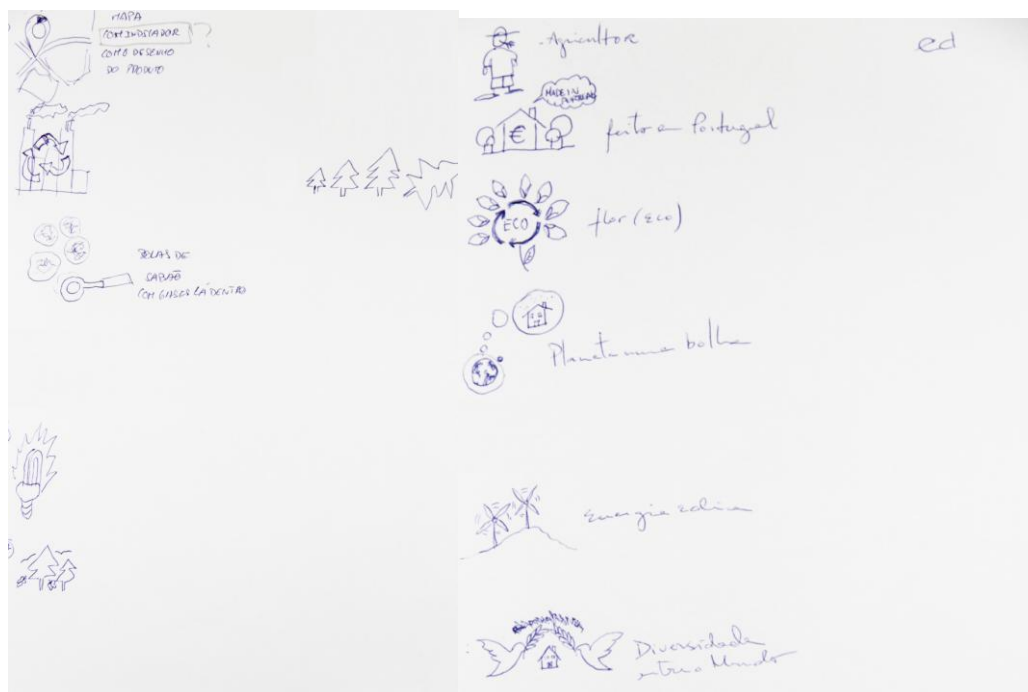 MAPA
COM INDICADOR ?
COM O DESENHO
DO PRODUTO
BOLAS DE
SABÃO
COM GASES LÁ DENTRO
Agricultor
ed
MADE IN
PORTUGAL
€
feito em Portugal
ECO
flor (Eco)
Planeta numa bolha
Energia eólica
Diversidade
entre o Mundo